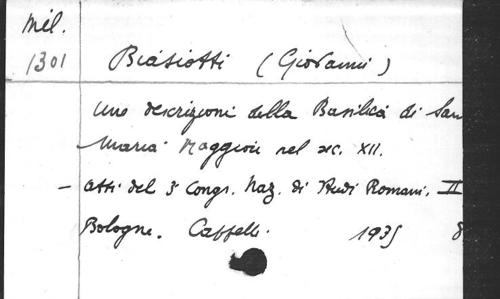 Mél.
1301 Biasiotti (Giovanni)
une descrizioni della Basilica di San
Maria Maggiore nel sec. XII.
- atti del 3° Congr. Naz. di Studi Romani. II
Bologne. Cappelli. 1935 8